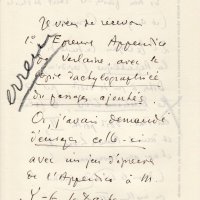 Je viens de recevoir
1º Épreuve Appendice
à Verlaine, avec la
copie dactylographiée
du passage ajoutés.
erreur
Or, j'avais demandé
d'envoyer celle-ci
avec un jeu d'épreuve
de l'Appendice à M.